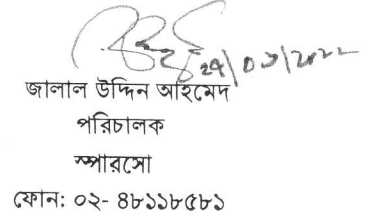 জালাল উদ্দিন আহমেদ
পরিচালক
স্পারসো
ফোন: ০২- ৪৮১১৮৫৮১